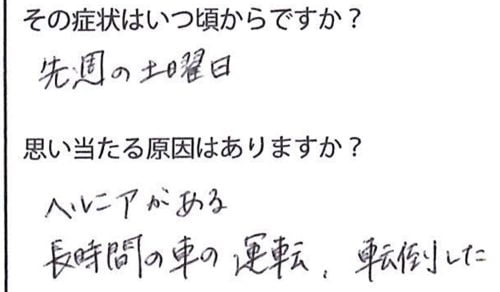 その症状はいつ頃からですか？
先週の土曜日
思い当たる原因はありますか？
ヘルニアがある
長時間の車の運転、転倒した